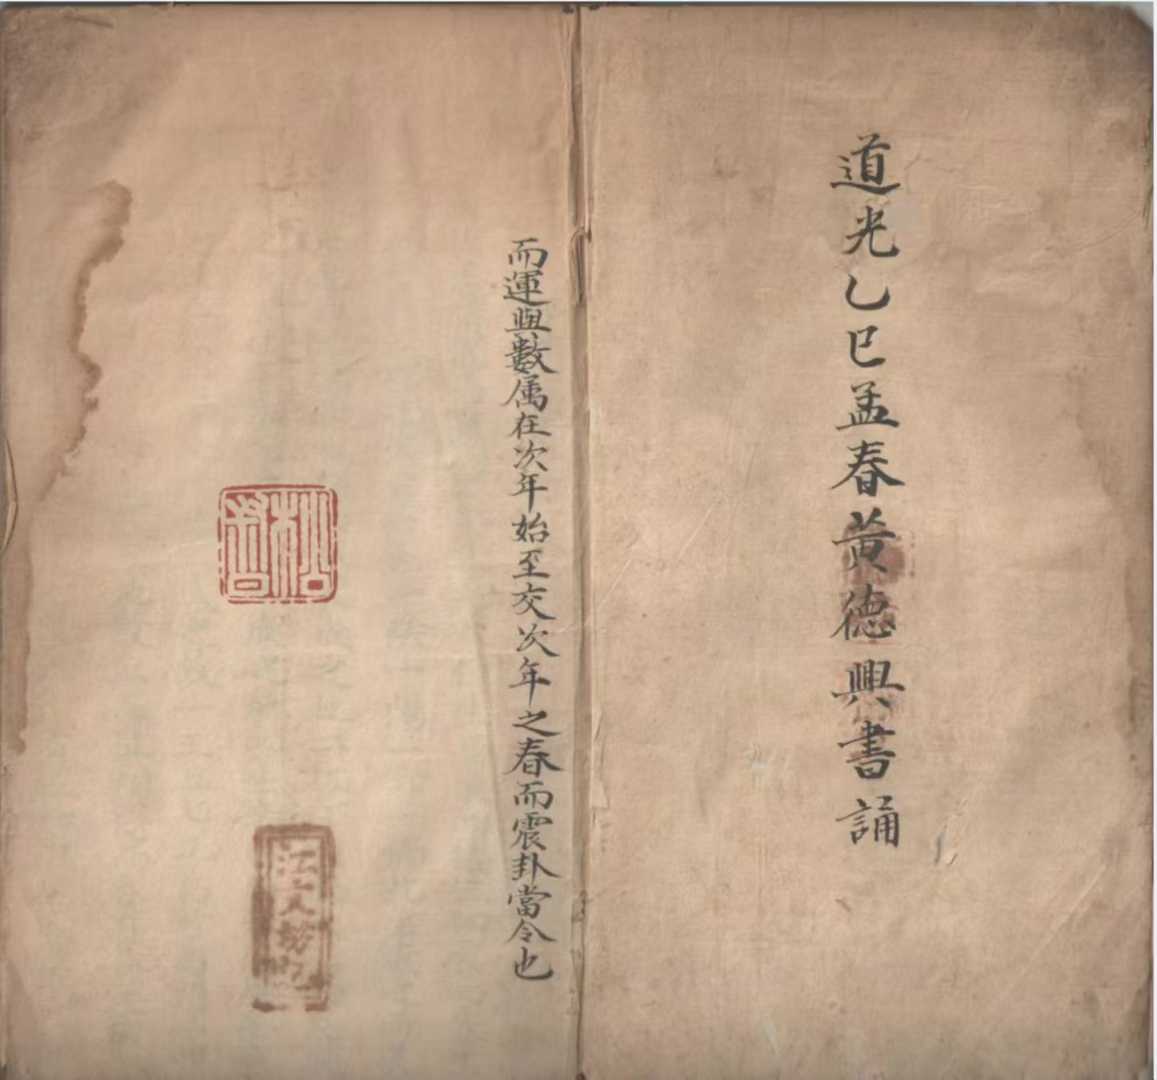 道光乙巳孟春黃德興書誦
而運與數属在次年始至交次年之春而震卦當令也